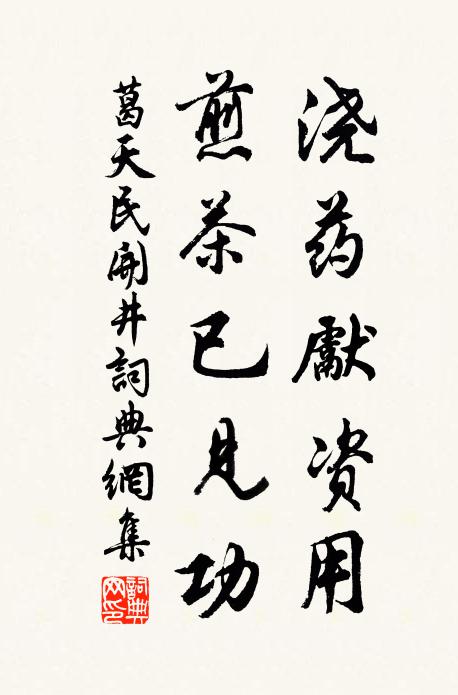 浇药獻资用
煎茶已见功
葛天民開井詞典網集
詞典網印